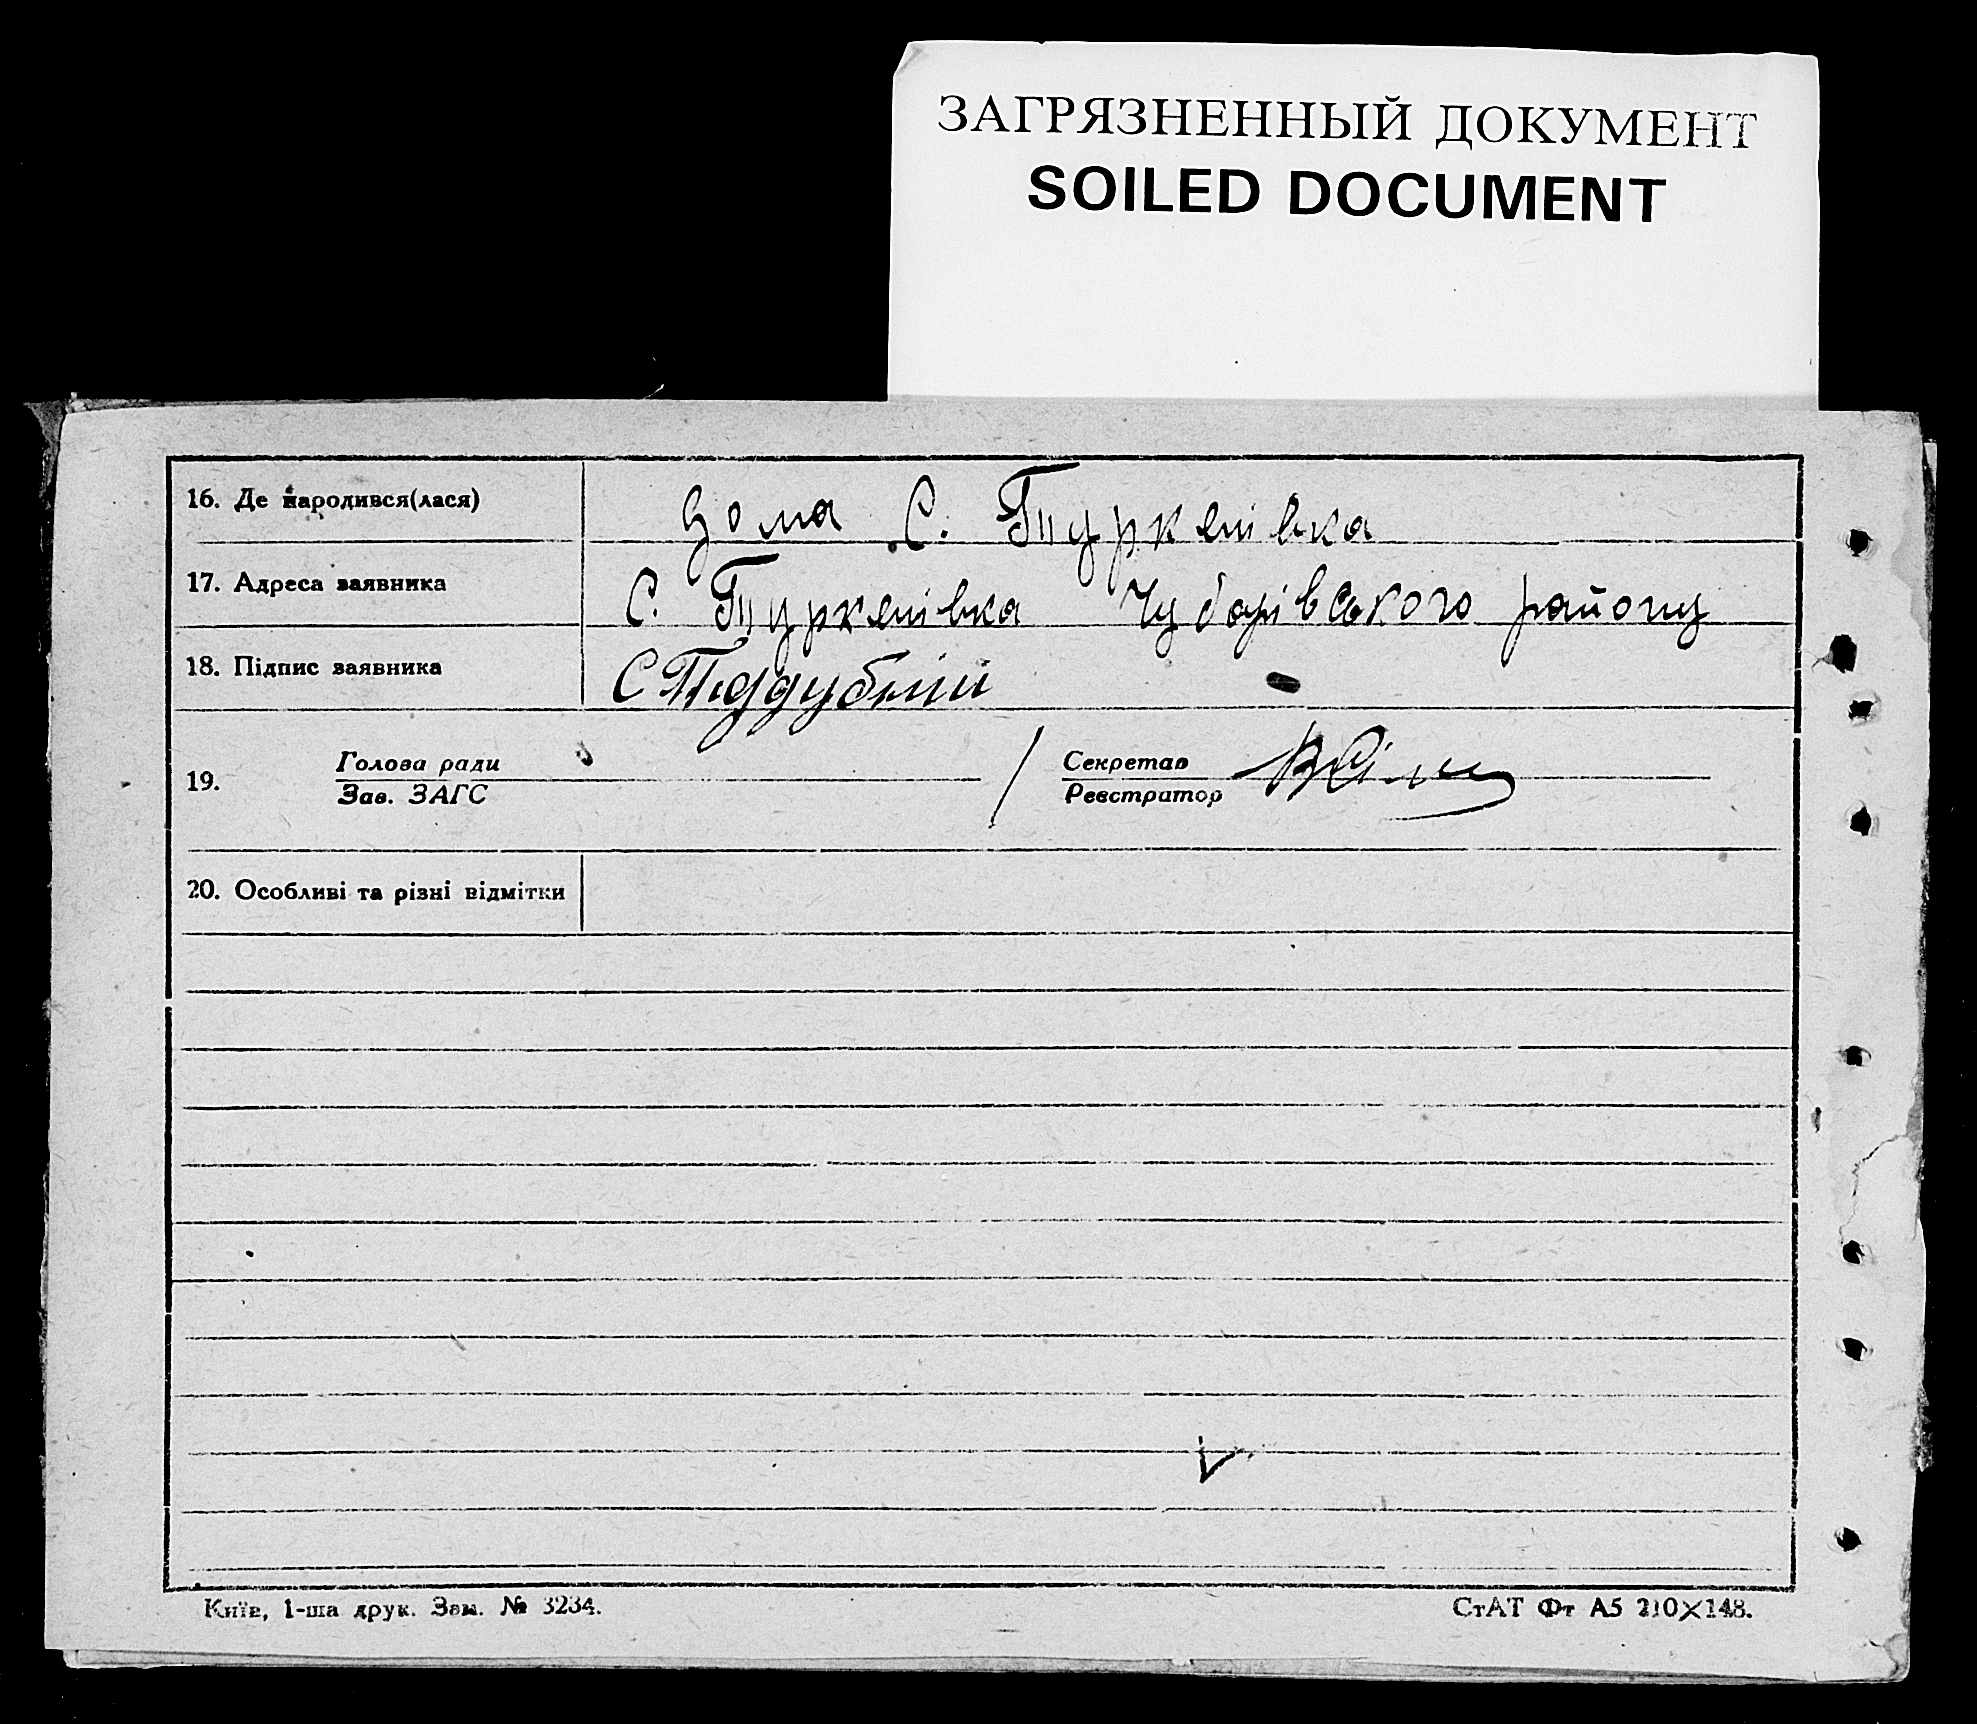 ЗАГРЯЗНЕННЫЙ ДОКУМЕНТ
SOILED DOCUMENT
16. Де народився(лася) дома С. Туркенівка
17. Адреса заявника С. Туркенівка Чубарівського району
18. Підпис заявника С Піддубній
19. Голова ради / Секретар
Зав. ЗАГС Реєстратор
20. Особливі та різні відмітки
Київ, 1-ша друк. Зам. № 3234. СтАТ Фт А5 210×148.